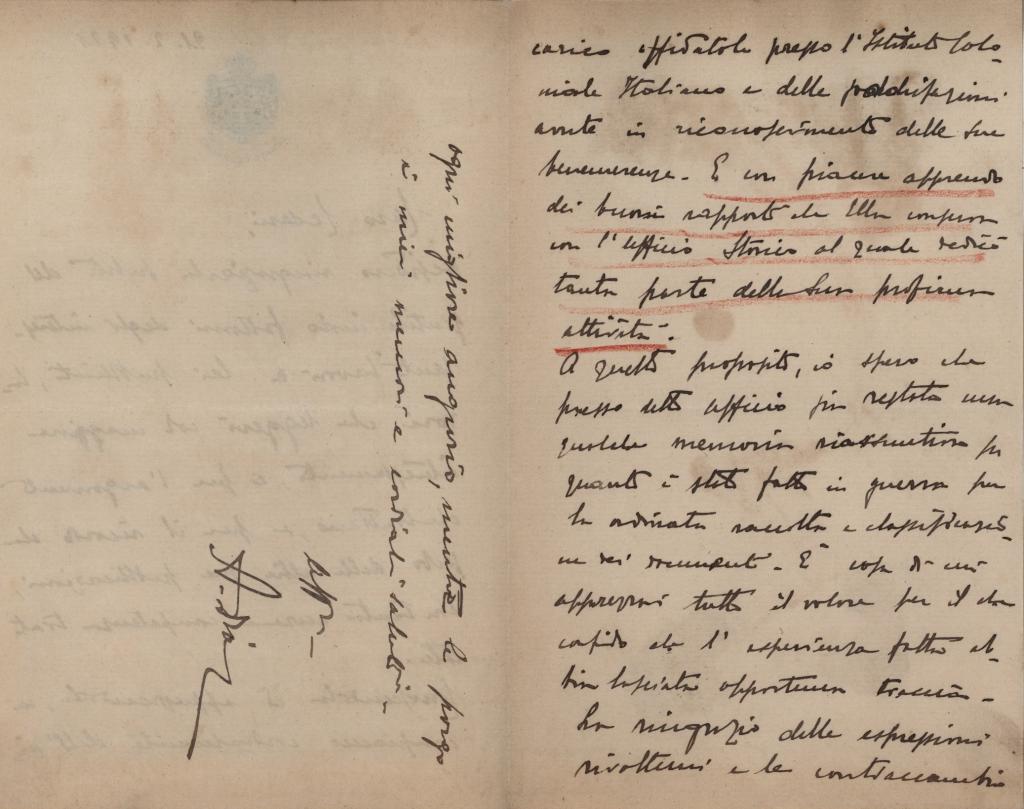 carico affidatole presso l'Istituto Colo-
niale Italiano e delle soddisfazioni
avute in riconoscimento delle Sue
benemerenze - E con piacere apprendo
dei buoni rapporti che Ella conserva
con l'Ufficio Storico al quale dedicò
tanta parte della Sua proficua
attività -
A questo proposito, io spero che
presso detto ufficio sia restata una
qualche memoria riassuntiva su
quanto è stato fatto in guerra per
la ordinata raccolta e classificazio-
ne dei documenti - È cosa di cui
apprezzai tutto il valore per il che
confido che l'esperienza fatta ab-
bia lasciata opportuna traccia -
La ringrazio delle espressioni
rivoltemi e le contraccambio
ogni migliore augurio, mentre le porgo
i miei memori e cordiali saluti -
A. Diaz